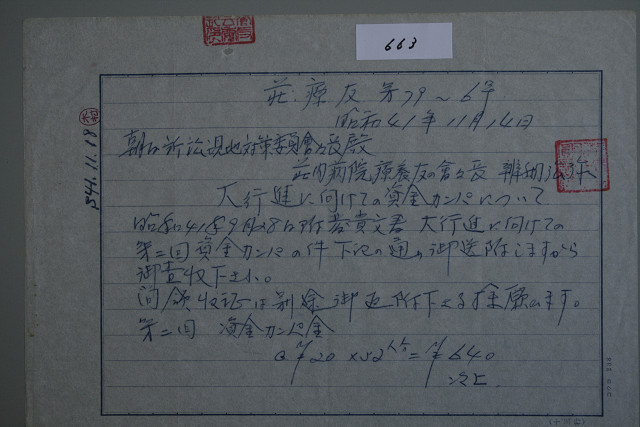 663
荘療友第79~6号
昭和41年11月14日
S41.11.18
朝日訴訟現地対策委員會々長殿
荘内病院療養友の會々長
大行進に向けての資金カンパについて
昭和41年9月28日附貴文書 大行進に向けての
第二回資金カンパの件下記の通り御送附しますから
御査収下さい。
尚領収証は別途御返附下さる様願います。
第二回 資金カンパ金
@¥20×32人分=¥640
以上